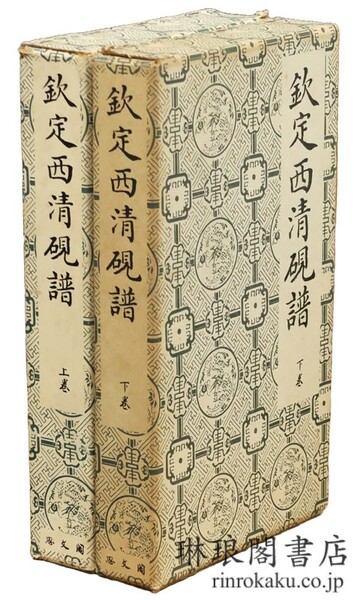 欽定西清硯譜
上巻
欽定西清硯譜
下巻
欽定西清硯譜
下巻
琳琅閣書店
rinrokaku.co.jp